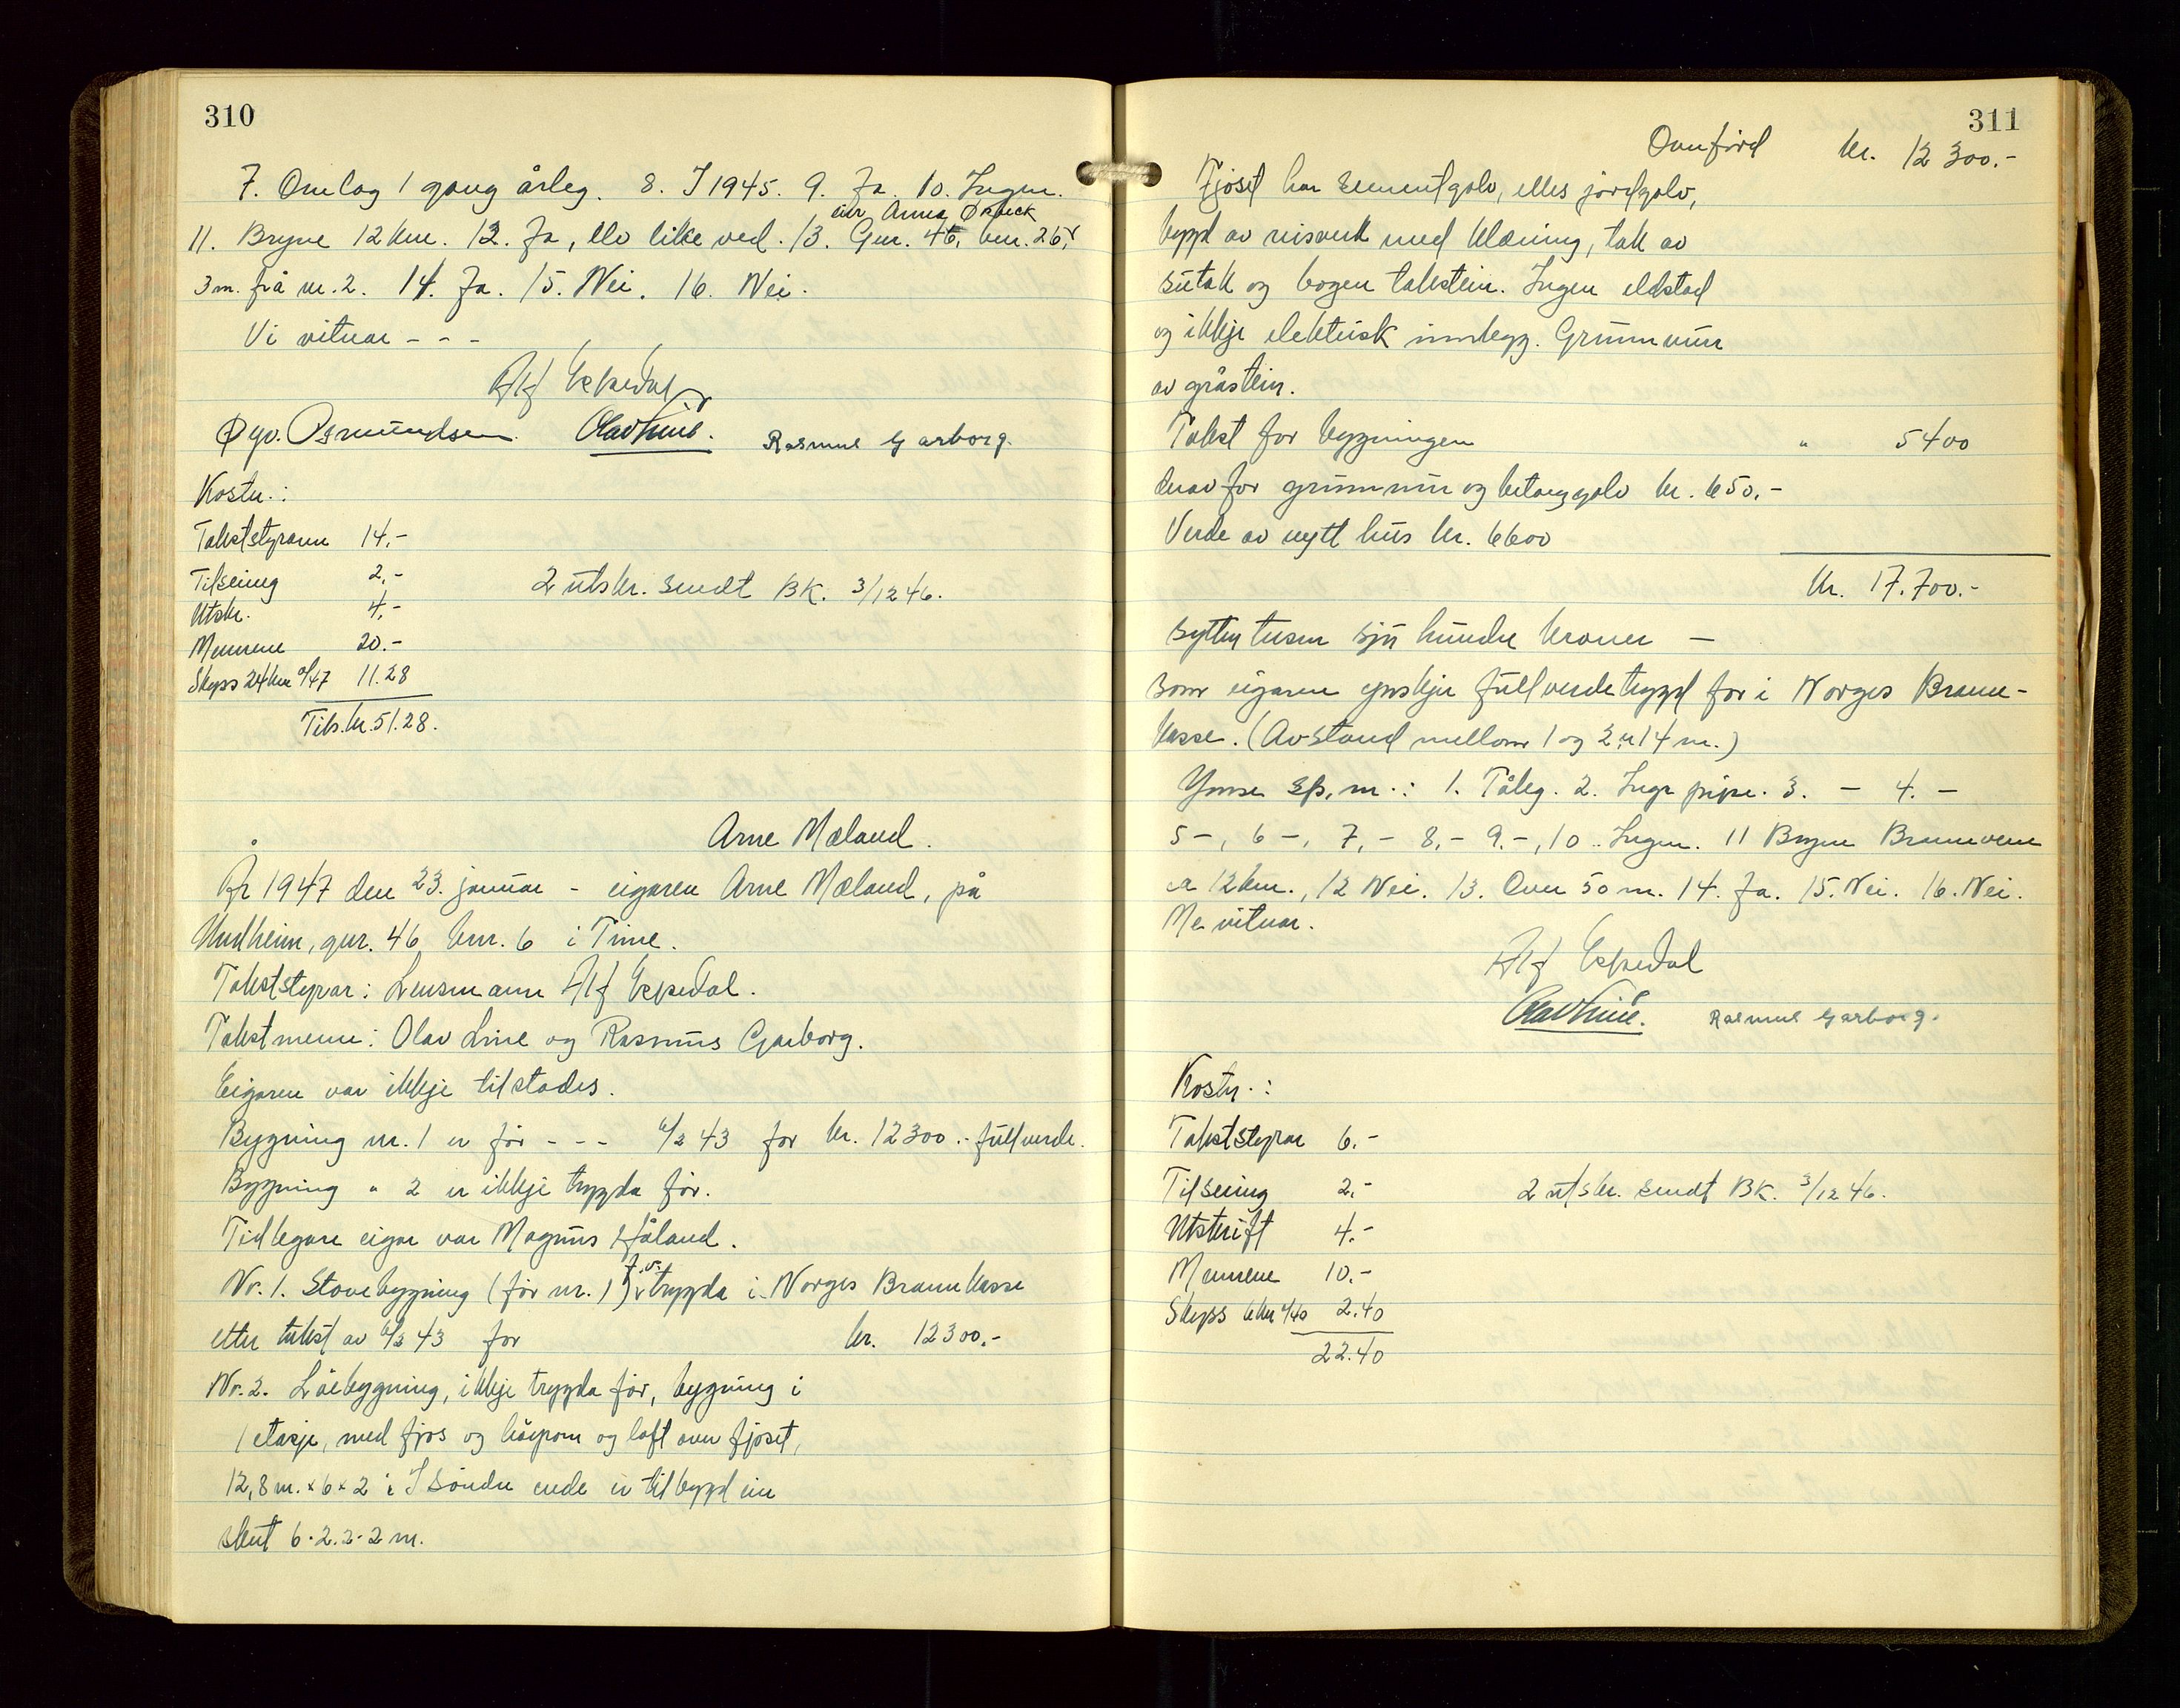 310
7. Omlag 1 gang årleg. 8. I 1945. 9. Ja. 10. Ingen.
eier Anna Ørbeck
11. Bryne 12 km. 12. Ja, elv like ved. 13. Gnr. 46, bnr. 26,
3 m. frå nr. 2. 14. Ja. 15. Nei. 16. Nei.
Vi vitnar - - -
Alf Espedal
Øyv. Osmundsen. Olav Line. Rasmus Garborg.
Kostn.:
Takststyraren 14.-
Tilseing 2.-
2 utskr. sendt BK. 3/12 46.
Utskr. 4.-
Mennene 20.-
Skyss 24 km a/47 11.28
Tils. kr. 51.28.
Arne Mæland.
År 1947 den 23. januar - eigaren Arne Mæland, på
Undheim, gnr. 46 bnr. 6 i Time.
Takststyrar: Lensmann Alf Espedal.
Takstmenn: Olav Line og Rasmus Garborg.
Eigaren var ikkje tilstades.
Bygning nr. 1 er før - - - 6/3 43 for kr. 12300.- fullverde.
Bygning " 2 er ikkje trygda før.
Tidlegare eigar var Magnus Håland.
Nr. 1. Stovebygning (før nr. 1) f.v. trygda i Norges Brannkasse
etter takst av 6/3 43 for kr. 12300.-
Nr. 2. Løebygning, ikkje trygda før, bygning i
1 etasje, med fjøs og høyrom og loft over fjøset,
12,8 m. x 6 x 2 i I søndre ende er tilbygd ein
skut 6 · 2.2 · 2 m.
311
Overførd kr. 12300.-
Fjøset har sementgolv, elles jordgolv,
bygd av reisverk med klæning, tak av
sutak og bogen takstein. Ingen eldstad
og ikkje elektrisk innlegg. Grunnmur
av gråstein.
Takst for bygningen " 5400
derav for grunnmur og betonggolv kr. 650.-
Verde av nytt hus kr. 6600
kr. 17.700.-
sytten tusen sju hundre kroner —
som eigaren ynskjer fullverdetrygd for i Norges Brann-
kasse. (Avstand mellom 1 og 2 er 14 m.)
Ymse sp.m.: 1. Tåleg. 2. Inga pipe. 3. - 4. -
5 -, 6 -, 7, - 8, - 9. -, 10. Ingen. 11 Bryne Brannvern
ca 12 km., 12 Nei. 13. Over 50 m. 14. Ja. 15. Nei. 16. Nei.
Me vitnar.
Alf Espedal
Olav Line. Rasmus Garborg.
Kostn.:
Takststyrar 6.-
Tilseing 2.-
2 utskr. sendt BK. 3/12 46.
Utskrift 4.-
Mennene 10.-
Skyss 6 km a/40 2.40
22.40